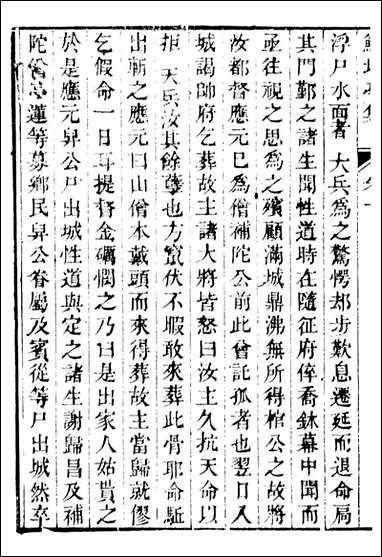 浮尸水面者大兵爲之驚愕却步歎息遷延而退命扃
其門鄞之諸生聞性道時在隨征府倅喬鉢幕中聞而
亟往視之思爲之殯顧滿城鼎沸無所得棺公之故將
汝都督應元巳爲僧補陀公前此曾託孤者也翌日入
城謁帥府乞葬故主諸大將皆怒曰汝主久抗天命以
拒天兵汝其餘孽也方竄伏不暇敢來葬此骨耶命駈
出斬之應元曰山僧本戴頭而來得葬故主當歸就僇
乞假命一日耳提督金礪憫之乃曰是出家人姑貰之
於是應元舁公尸出城性道與定之諸生謝歸昌及補
陀僧心蓮等募鄉民舁公眷屬及賓從等尸出城然卒